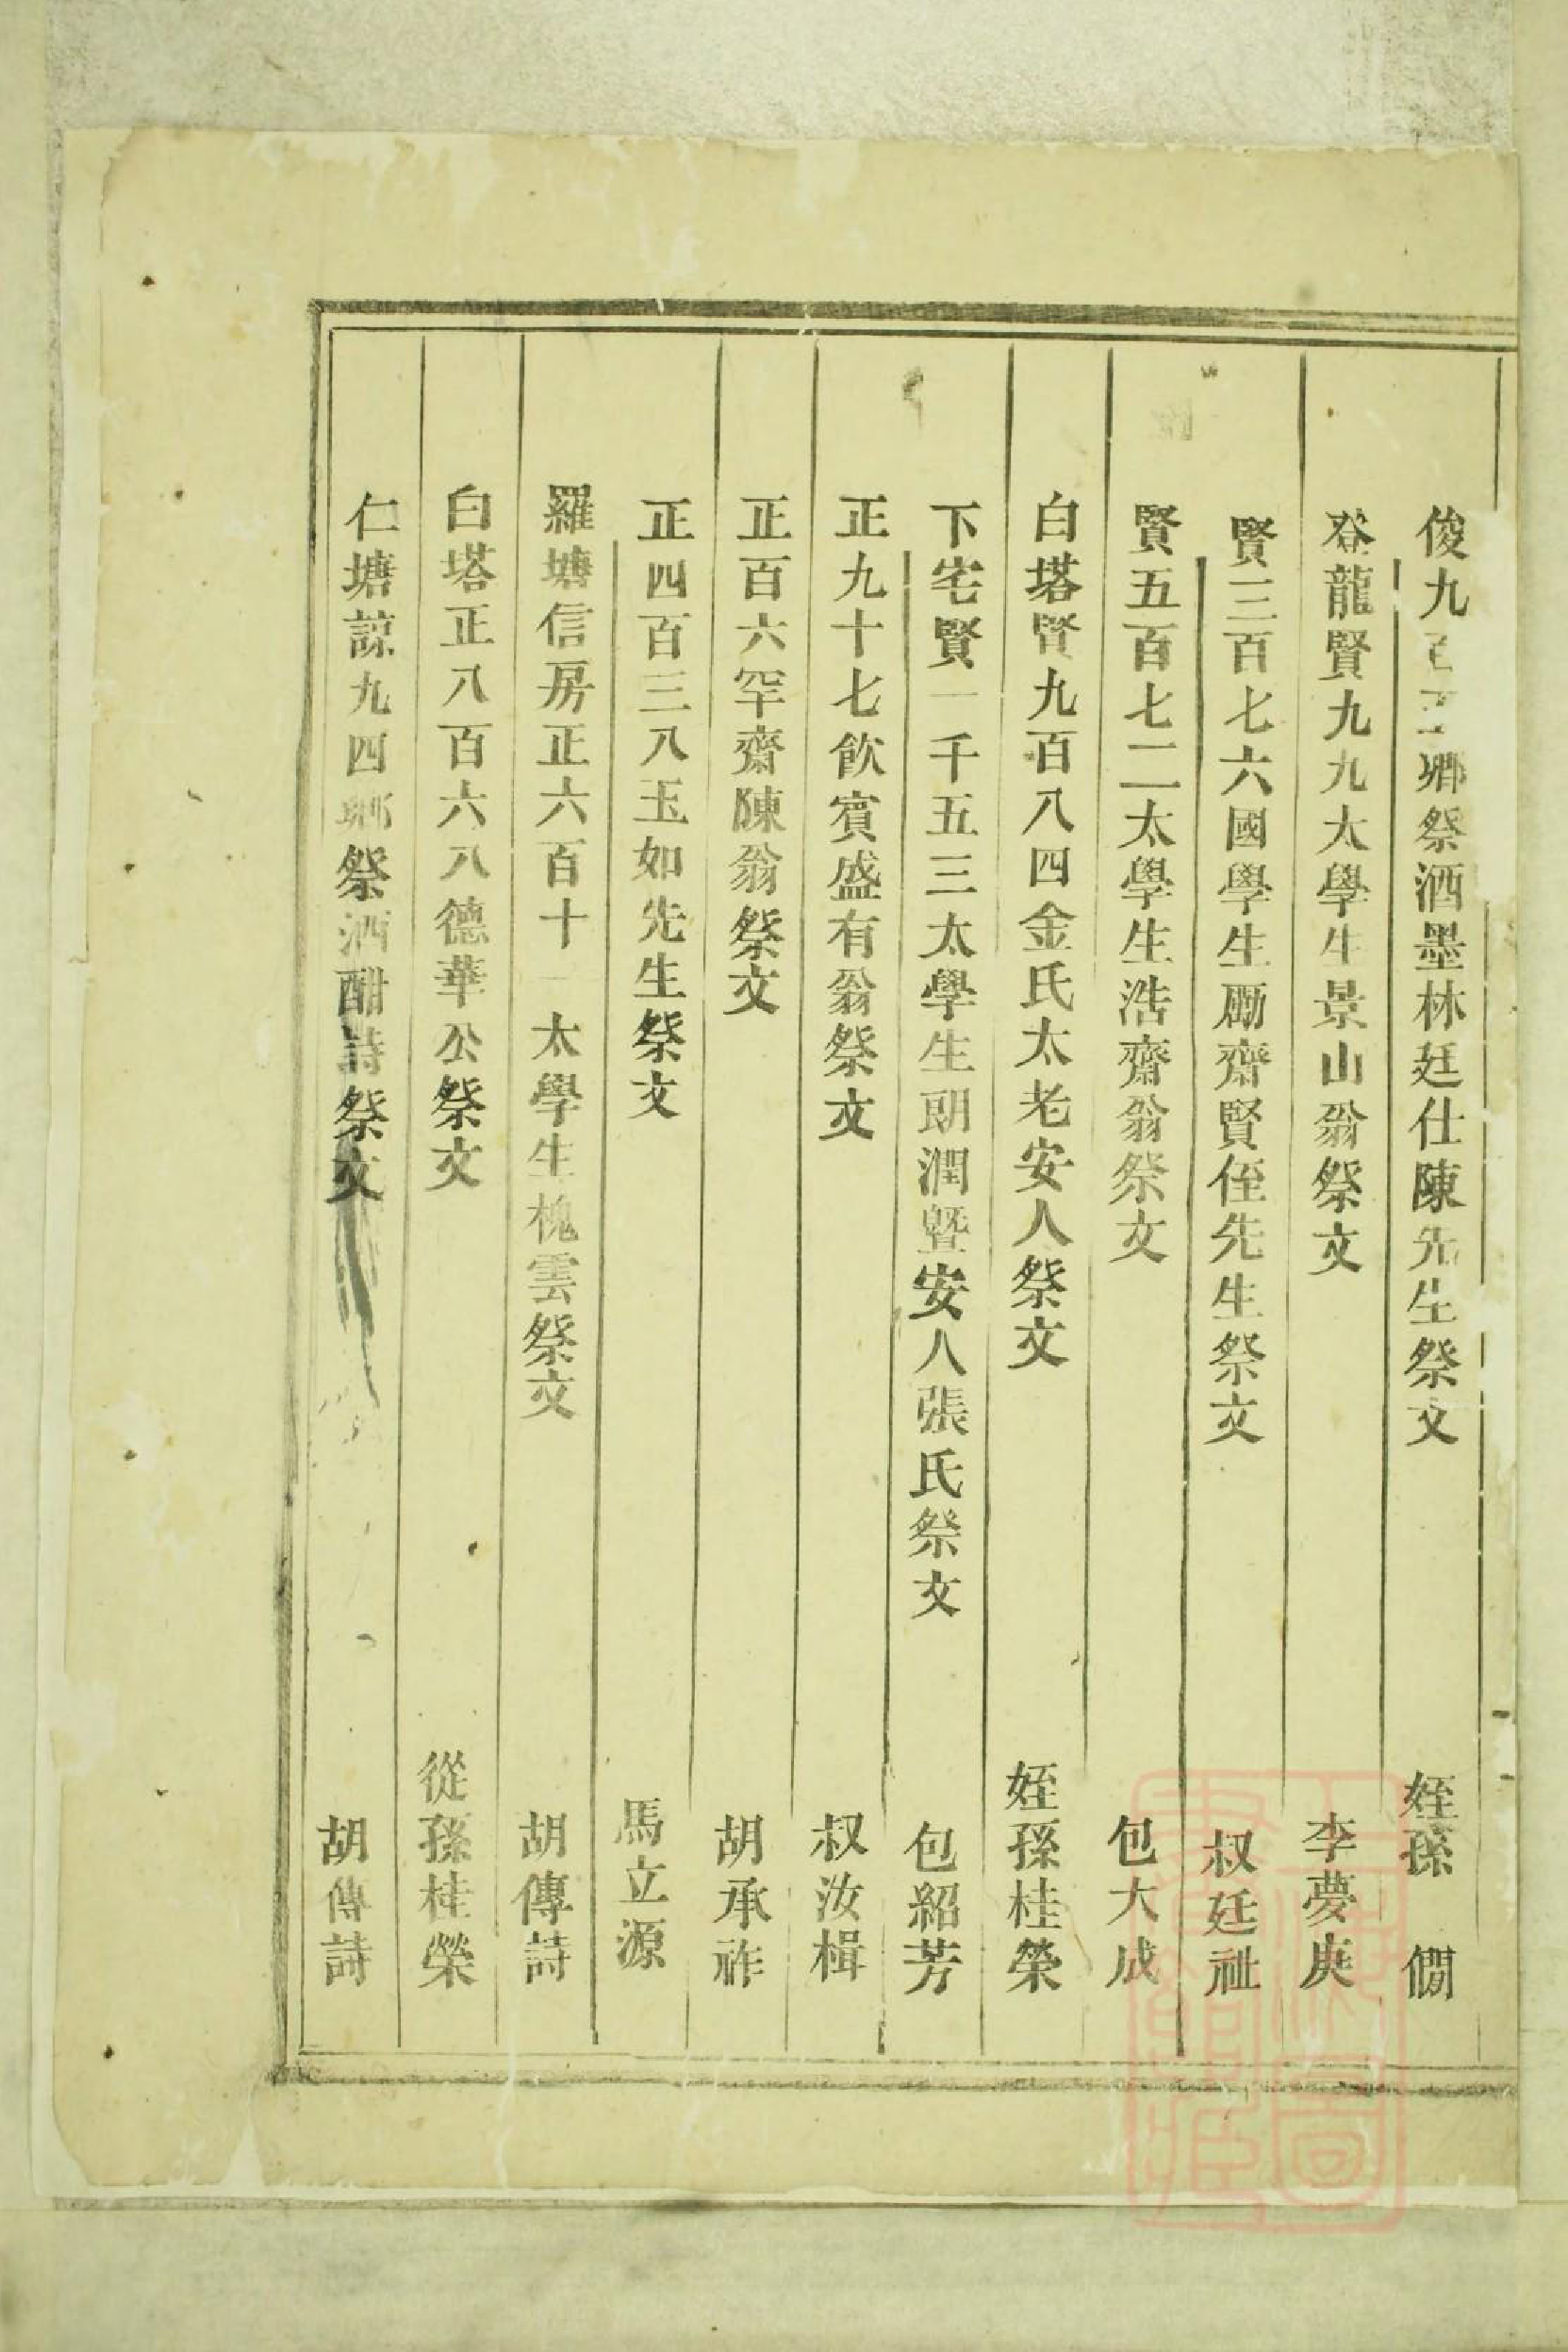 俊九百 鄉祭酒墨林廷仕陳先生祭文 姪孫 僩
登龍賢九九太學生景山翁祭文 李夢庚
賢三百七六國學生勵齋賢侄先生祭文 叔廷祉
賢五百七二太學生浩齋翁祭文 包大成
白塔賢九百八四金氏太老安人祭文 姪孫桂榮
下宅賢一千五三太學生朗潤暨安人張氏祭文 包紹芳
正九十七飲賓盛有翁祭文 叔汝楫
正百六罕齋陳翁祭文 胡承祚
正四百三八玉如先生祭文 馬立源
羅塘信房正六百十一太學生槐雲祭文 胡傳詩
白塔正八百六八德華公祭文 從孫桂榮
仁塘諒九四鄉祭酒酣詩祭文 胡傳詩